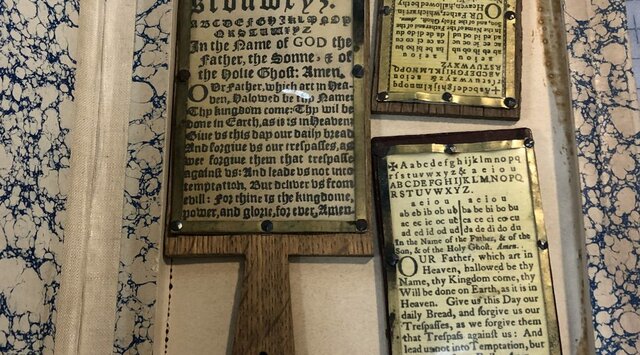 stuuwxyz.
ABCDEFGHIJKLMNOP
QRSTUWXYZ
In the Name of GOD the
Father, the Sonne, & of
the Holie Ghost: Amen.
OUr Father, which art in Hea-
ven, Halowed be thy Name
Thy kingdom come: Thy wil be
done in Earth, as it is in Heaven
Giue vs this day our daily bread
And forgive us our trespasses, as
wee forgive them that trespasse
against vs: And leade vs not into
temptation, But deliver vs from
evill: For thine is the kingdome
power, and glory, for ever, Amen
✠Aabcdefghijklmnopq
rſstuvwxyz& aeiou
ABCDEFGHIJKLMNOPQ
RSTUVWXYZ.
a e i o u | a e i o u
ab eb ib ob ub | ba be bi bo bu
ac ec ic oc uc | ca ce ci co cu
ad ed id od ud | da de di do du
In the Name of the Father, & of the
Son, & of the Holy Ghoſt. Amen.
OUR Father, which art in
Heaven, hallowed be thy
Name, thy Kingdom come, thy
Will be done on Earth, as it is in
Heaven. Give us this Day our
daily Bread, and forgive us our
Treſpaſſes, as we forgive them
that Treſpaſs againſt us: And
lead us not into Temptation, but